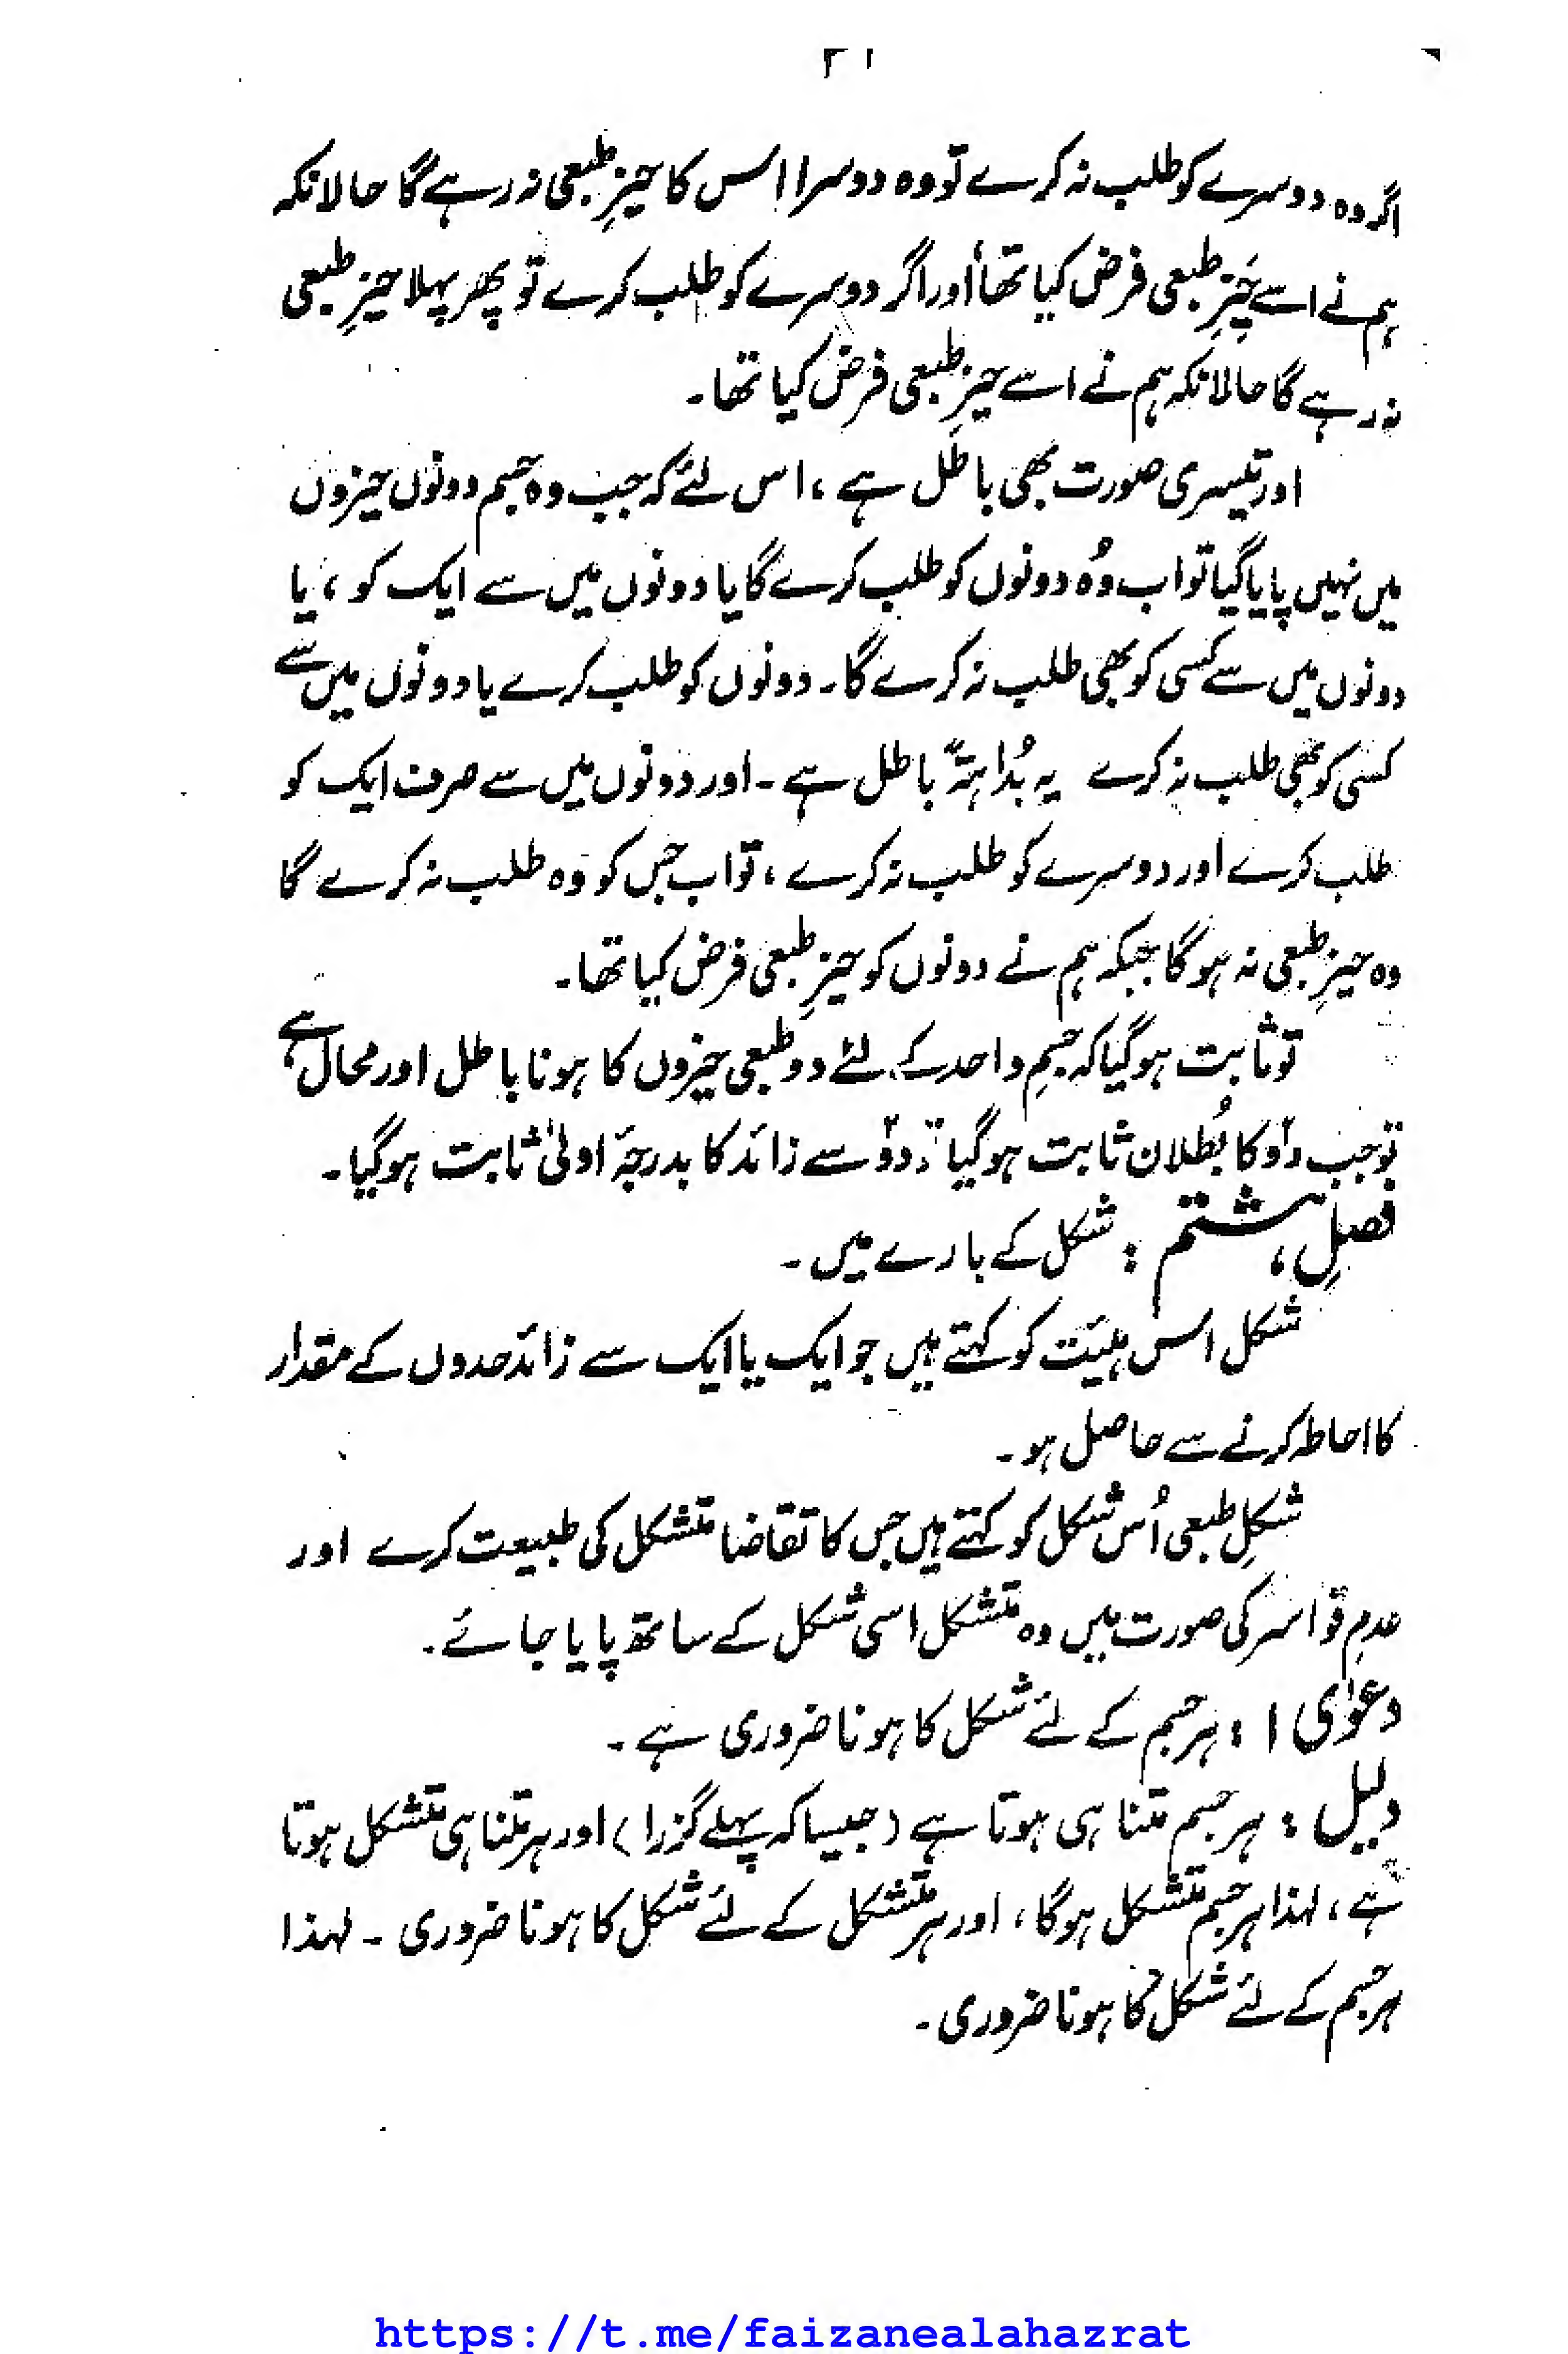 ۲۱
اگر وہ دوسرے کو طلب نہ کرے تو وہ دوسرا اس کا حیزِ طبعی نہ رہے گا حالانکہ
ہم نے اسے حَیّزِ طبعی فرض کیا تھا، اور اگر دوسرے کو طلب کرے تو پھر پہلا حیزِ طبعی
نہ رہے گا حالانکہ ہم نے اسے حیزِ طبعی فرض کیا تھا۔
اور تیسری صورت بھی باطل ہے، اس لئے کہ جب وہ جسم دونوں حیزوں
میں نہیں پایا گیا تو اب وُہ دونوں کو طلب کرے گا یا دونوں میں سے ایک کو، یا
دونوں میں سے کسی کو بھی طلب نہ کرے گا۔ دونوں کو طلب کرے یا دونوں میں سے
کسی کو بھی طلب نہ کرے یہ بُداہتہً باطل ہے۔ اور دونوں میں سے صرف ایک کو
طلب کرے اور دوسرے کو طلب نہ کرے، تو اب جس کو وہ طلب نہ کرے گا
وہ حیزِ طبعی نہ ہوگا جبکہ ہم نے دونوں کو حیزِ طبعی فرض کیا تھا۔
تو ثابت ہوگیا کہ جسمِ واحد کے لئے دو طبعی حیزوں کا ہونا باطل اور محال ہے،
تو جب دو کا بُطلان ثابت ہوگیا تو دو سے زائد کا بدرجۂ اولیٰ ثابت ہوگیا۔
فصلِ ہشتم : شکل کے بارے میں۔
شکل اس ہیئت کو کہتے ہیں جو ایک یا ایک سے زائد حدوں کے مقدار
کا احاطہ کرنے سے حاصل ہو۔
شکلِ طبعی اُس شکل کو کہتے ہیں جس کا تقاضا متشکل کی طبیعت کرے اور
عدمِ قواسر کی صورت میں وہ متشکل اسی شکل کے ساتھ پایا جائے۔
دعوٰی ۱ : ہر جسم کے لئے شکل کا ہونا ضروری ہے۔
دلیل : ہر جسم متناہی ہوتا ہے (جیسا کہ پہلے گزرا) اور ہر متناہی متشکل ہوتا
ہے، لہذا ہر جسم متشکل ہوگا، اور ہر متشکل کے لئے شکل کا ہونا ضروری۔ لہذا
ہر جسم کے لئے شکل کا ہونا ضروری۔
https://t.me/faizanealahazrat